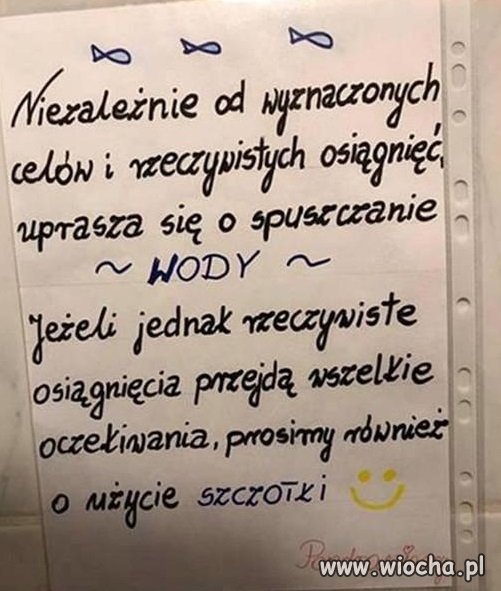 Niezależnie od wyznaczonych
celów i rzeczywistych osiągnięć,
uprasza się o spuszczanie
~ WODY ~
Jeżeli jednak rzeczywiste
osiągnięcia przejdą wszelkie
oczekiwania, prosimy również
o użycie SZCZOTKI
www.wiocha.pl